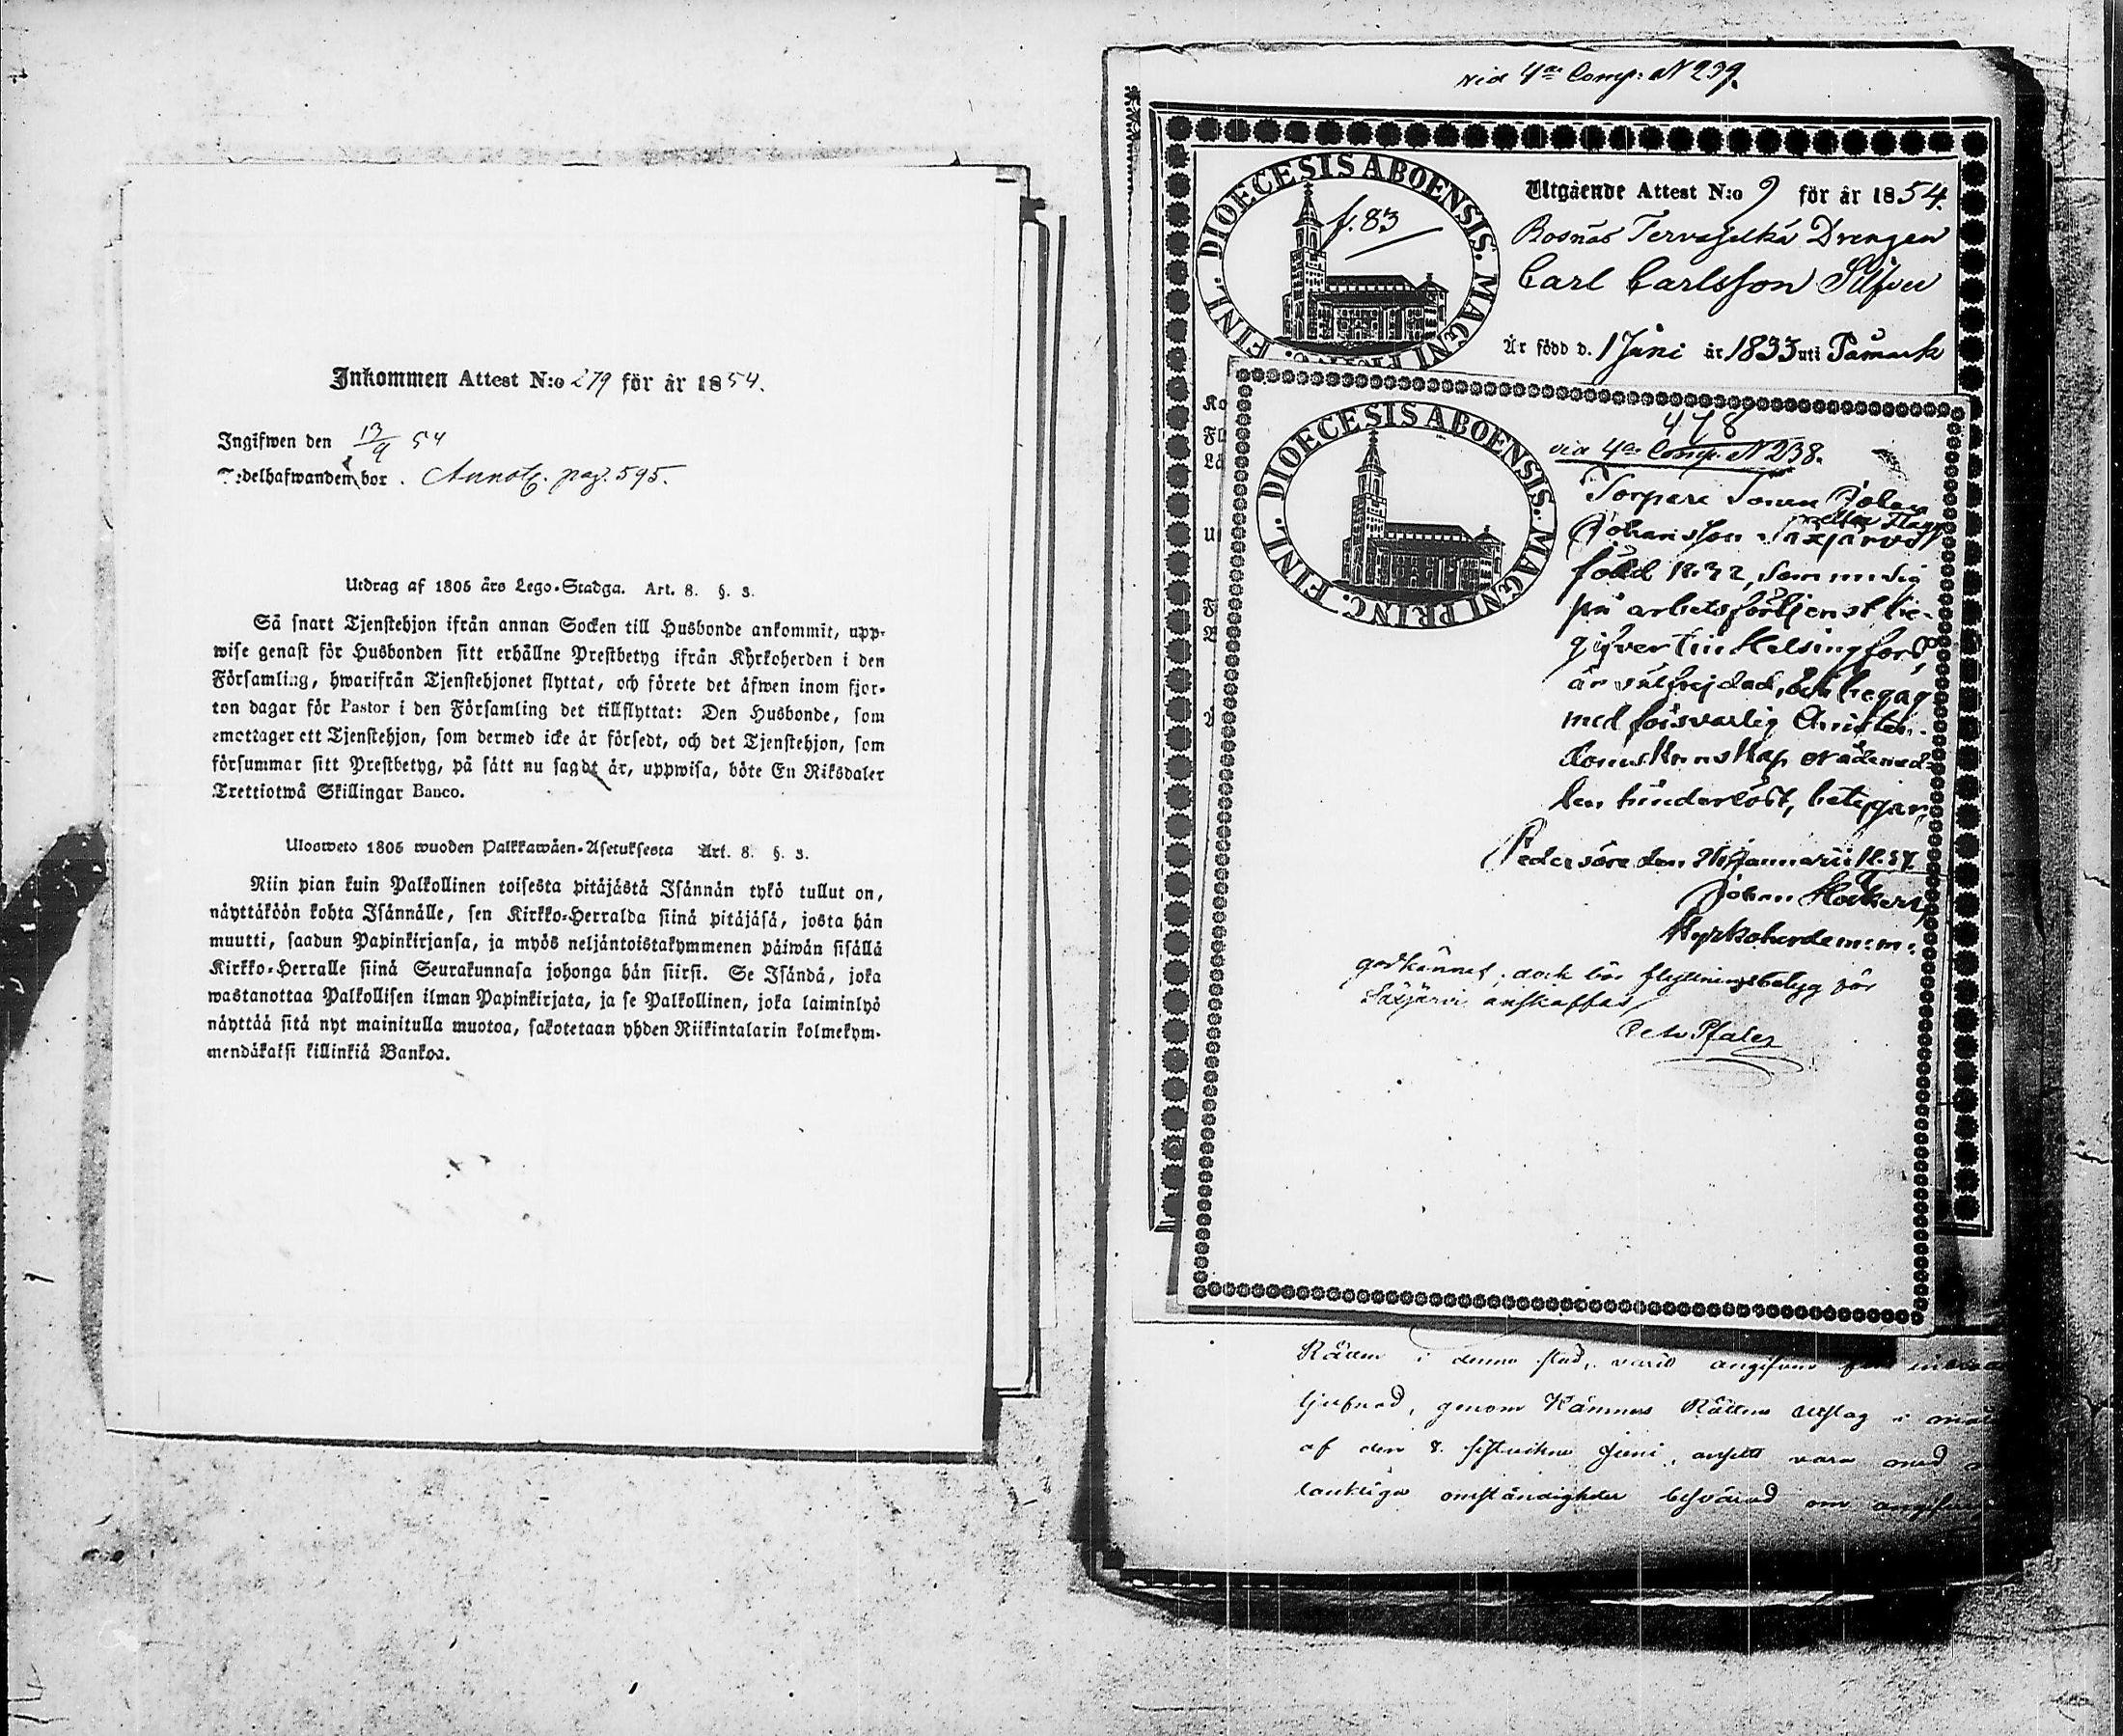 Inkommen Attest N:o 279 för år 1854.
Ingifwen den 13/9 54
delhafwanden bor. Annot. pag. 595.
Utdrag af 1805 års Lego-Stadga. Art. 8. §. 3.
Så snart Tjenstehjon ifrån annan Socken till Husbonde ankommit, upp-
wise genast för Husbonden sitt erhållne Prestbetyg ifrån Kyrkoherden i den
Församling, hwarifrån Tjenstehjonet flyttat, och förete det äfwen inom fjor-
ton dagar för Pastor i den Församling det tillflyttat: Den Husbonde, som
emottager ett Tjenstehjon, som dermed icke är försedt, och det Tjenstehjon, som
försummar sitt Prestbetyg, på sätt nu sagdt är, uppwisa, böte En Riksdaler
Trettiotwå Skillingar Banco.
Ulosweto 1805 wuoden Palkkawäen-Asetuksesta Art. 8. §. 3.
Niin pian kuin Palkollinen toisesta pitäjästä Isännän tykö tullut on,
näyttäköön kohta Isännälle, sen Kirkko-Herralda siinä pitäjäsä, josta hän
muutti, saadun Papinkirjansa, ja myös neljäntoistakymmenen päiwän sisällä
Kirkko-Herralle siinä Seurakunnasa johonga hän siirsi. Se Isändä, joka
wastanottaa Palkollisen ilman Papinkirjata, ja se Palkollinen, joka laiminlyö
näyttää sitä nyt mainitulla muotoa, sakotetaan yhden Riikintalarin kolmekym-
mendäkaksi killinkiä Bankoa.
vid 4de Comp: N 239.
DIOECESIS ABOENSIS. MAGNI PRINC. FINL.
f. 83
Utgående Attest N:o 9 för år 1854.
Bosnäs Tervaselkä Drengen
Carl Carlsson Silfver
Är född d. 1 Juni år 1833 uti Påmark
Ko
Fl
Lä
DIOECESIS ABOENSIS. MAGNI PRINC. FINL.
478
vid 4de Comp. N 238.
Torpare Sonen Johan
Johansson
född 1832, som nu sig
på arbetsförtjenst be-
gifver till Helsingfors,
är välfrejdad, och begag
med försvarlig Christen-
doms Kunskap nådemed-
len hinderlöst, betygar,
Pedersöre den 26 Januarii 1854.
Johan
Kyrkoherde m: m:
godkännes, dock bör flyttningsbetyg för
Saxjärvi anskaffas
Pfaler
Rätten i denna stad, varit angifven för
tjufnad, genom Kämners Rättens utslag i
af den 8. sistvikne Juni, ansetts vara med
omständigheter besvärad om